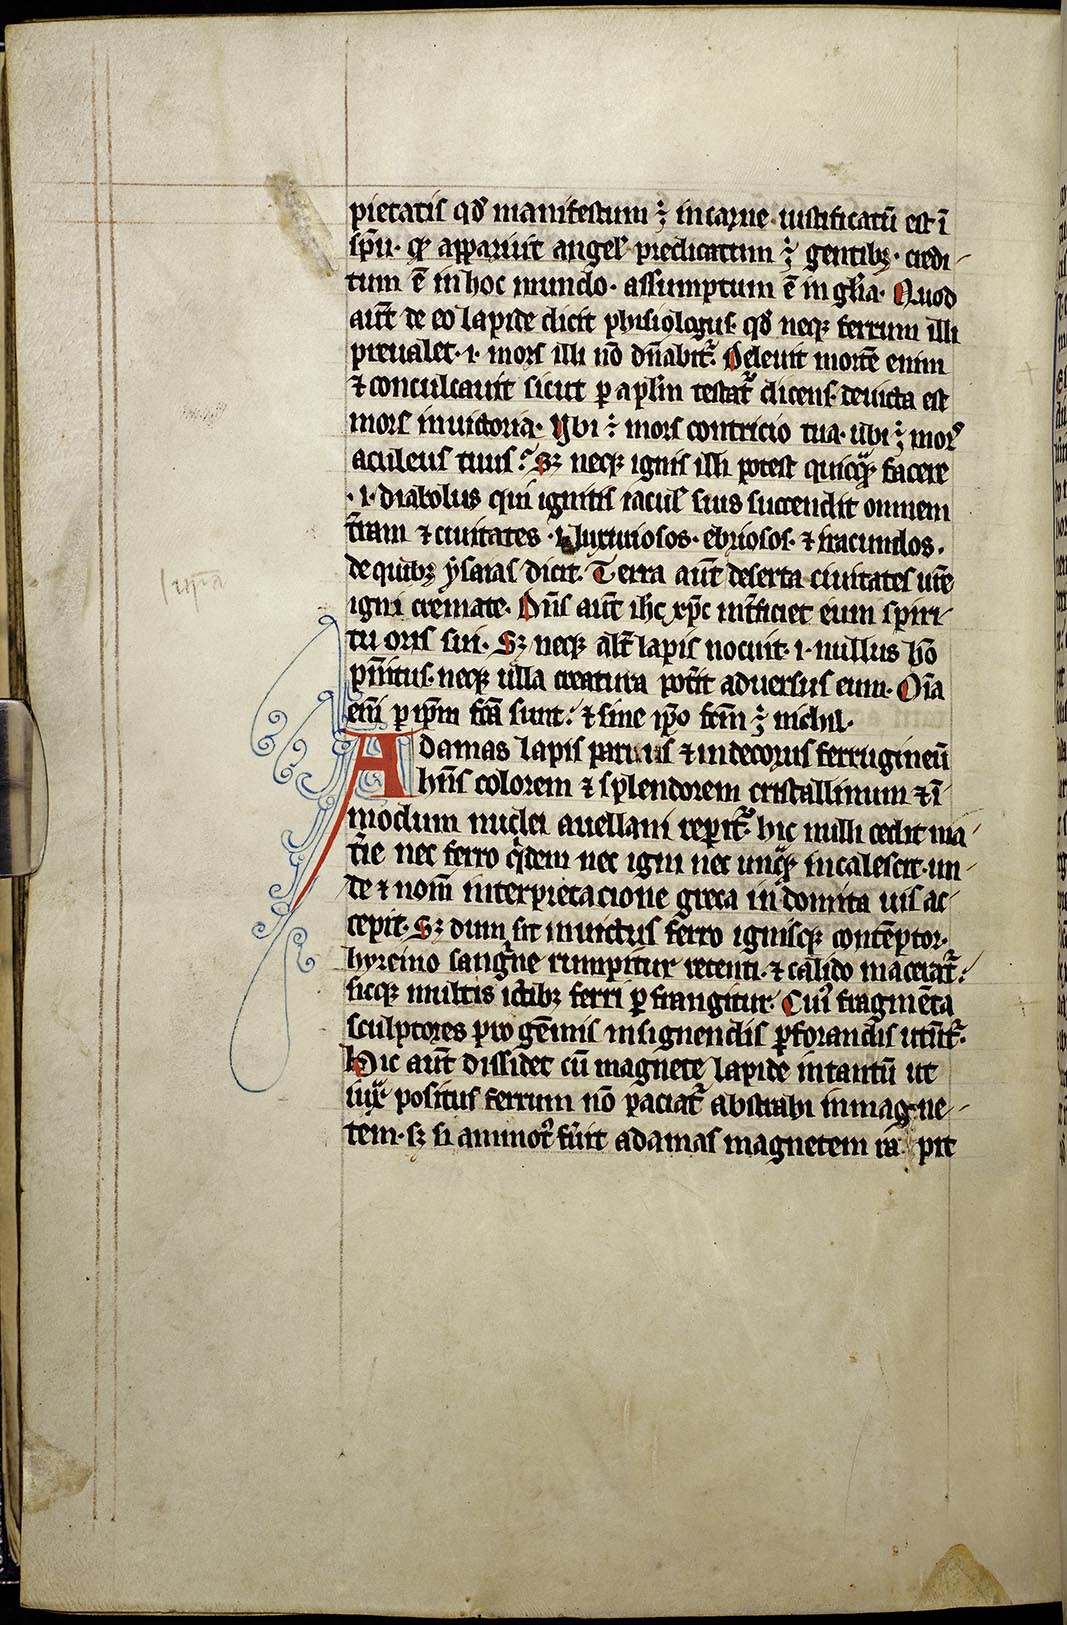 pietatis qd manifestum ÷ in carne iustificatū est ī
spu· qd apparuit angel' predicatum ÷ gentibꝫ· credi-
tum ē in hoc mundo· assumptum ē in gl̄ia· Quod
aut̄ de eo lapide dicit phisiologus· qd neqꝫ ferrum illi
preualet· i· mors illi nō dn̄abit᷑· Deleuit mortē enim
⁊ conculcauit sicut ꝑ apl̄m testat᷑ dicens· deuicta est
mors in uictoria· Vbi ÷ mors contricio tua· ubi ÷ mor᷒
aculeus tuus? Sꝫ neqꝫ ignis illi potest quicqᷓꝫ facere
·i· diabolus qui ignitis iacul' suis succendit omnem
t̄ram ⁊ ciuitates · luxuriosos· ebriosos· ⁊ iracundos·
de quibꝫ ysaias dicit· Terra aut̄ deserta ciuitates ur̄e
igni cremate· Dn̄s aut̄ ihc xp̄c int̄ficiet eum spiri-
tu oris sui· Sꝫ neqꝫ alt̄ lapis nocuit· i· nullus hō
pn̄itus· neqꝫ ulla creatura pot̄it aduersus eum· Oīa
enī ꝑ ip̄m fc̄a sunt· ⁊ sine ip̄o fc̄m ÷ nichil·
Adamas lapis paruus ⁊ indecorus ferrugineū
hn̄s colorem ⁊ splendorem cristallinum ⁊ ī
modum nuclei auellani reperit᷑· hic nulli cedit ma-
t̄ie nec ferro qͥdem nec igni nec unqᷓꝫ incalescit· un-
de ⁊ nom̄ interpretacione greca indomita uis ac-
cepit· Sꝫ dum sit inuictus ferro ignisqꝫ contēptor·
hyrcino sangͥne rumpitur recenti· ⁊ calido macerat᷑·
sicqꝫ multis ictibꝫ ferri ꝑfrangitur· Cui᷒ fragmēta
sculptores pro gēmis insignendis ꝑforandis utūt᷑·
Hic aut̄ dissidet cū magnete lapide intantū ut
iuxᷓ positus ferrum nō paciat᷑ abstrahi in magne-
tem· sꝫ si ammot᷒ fūit adamas magnetem ra pit